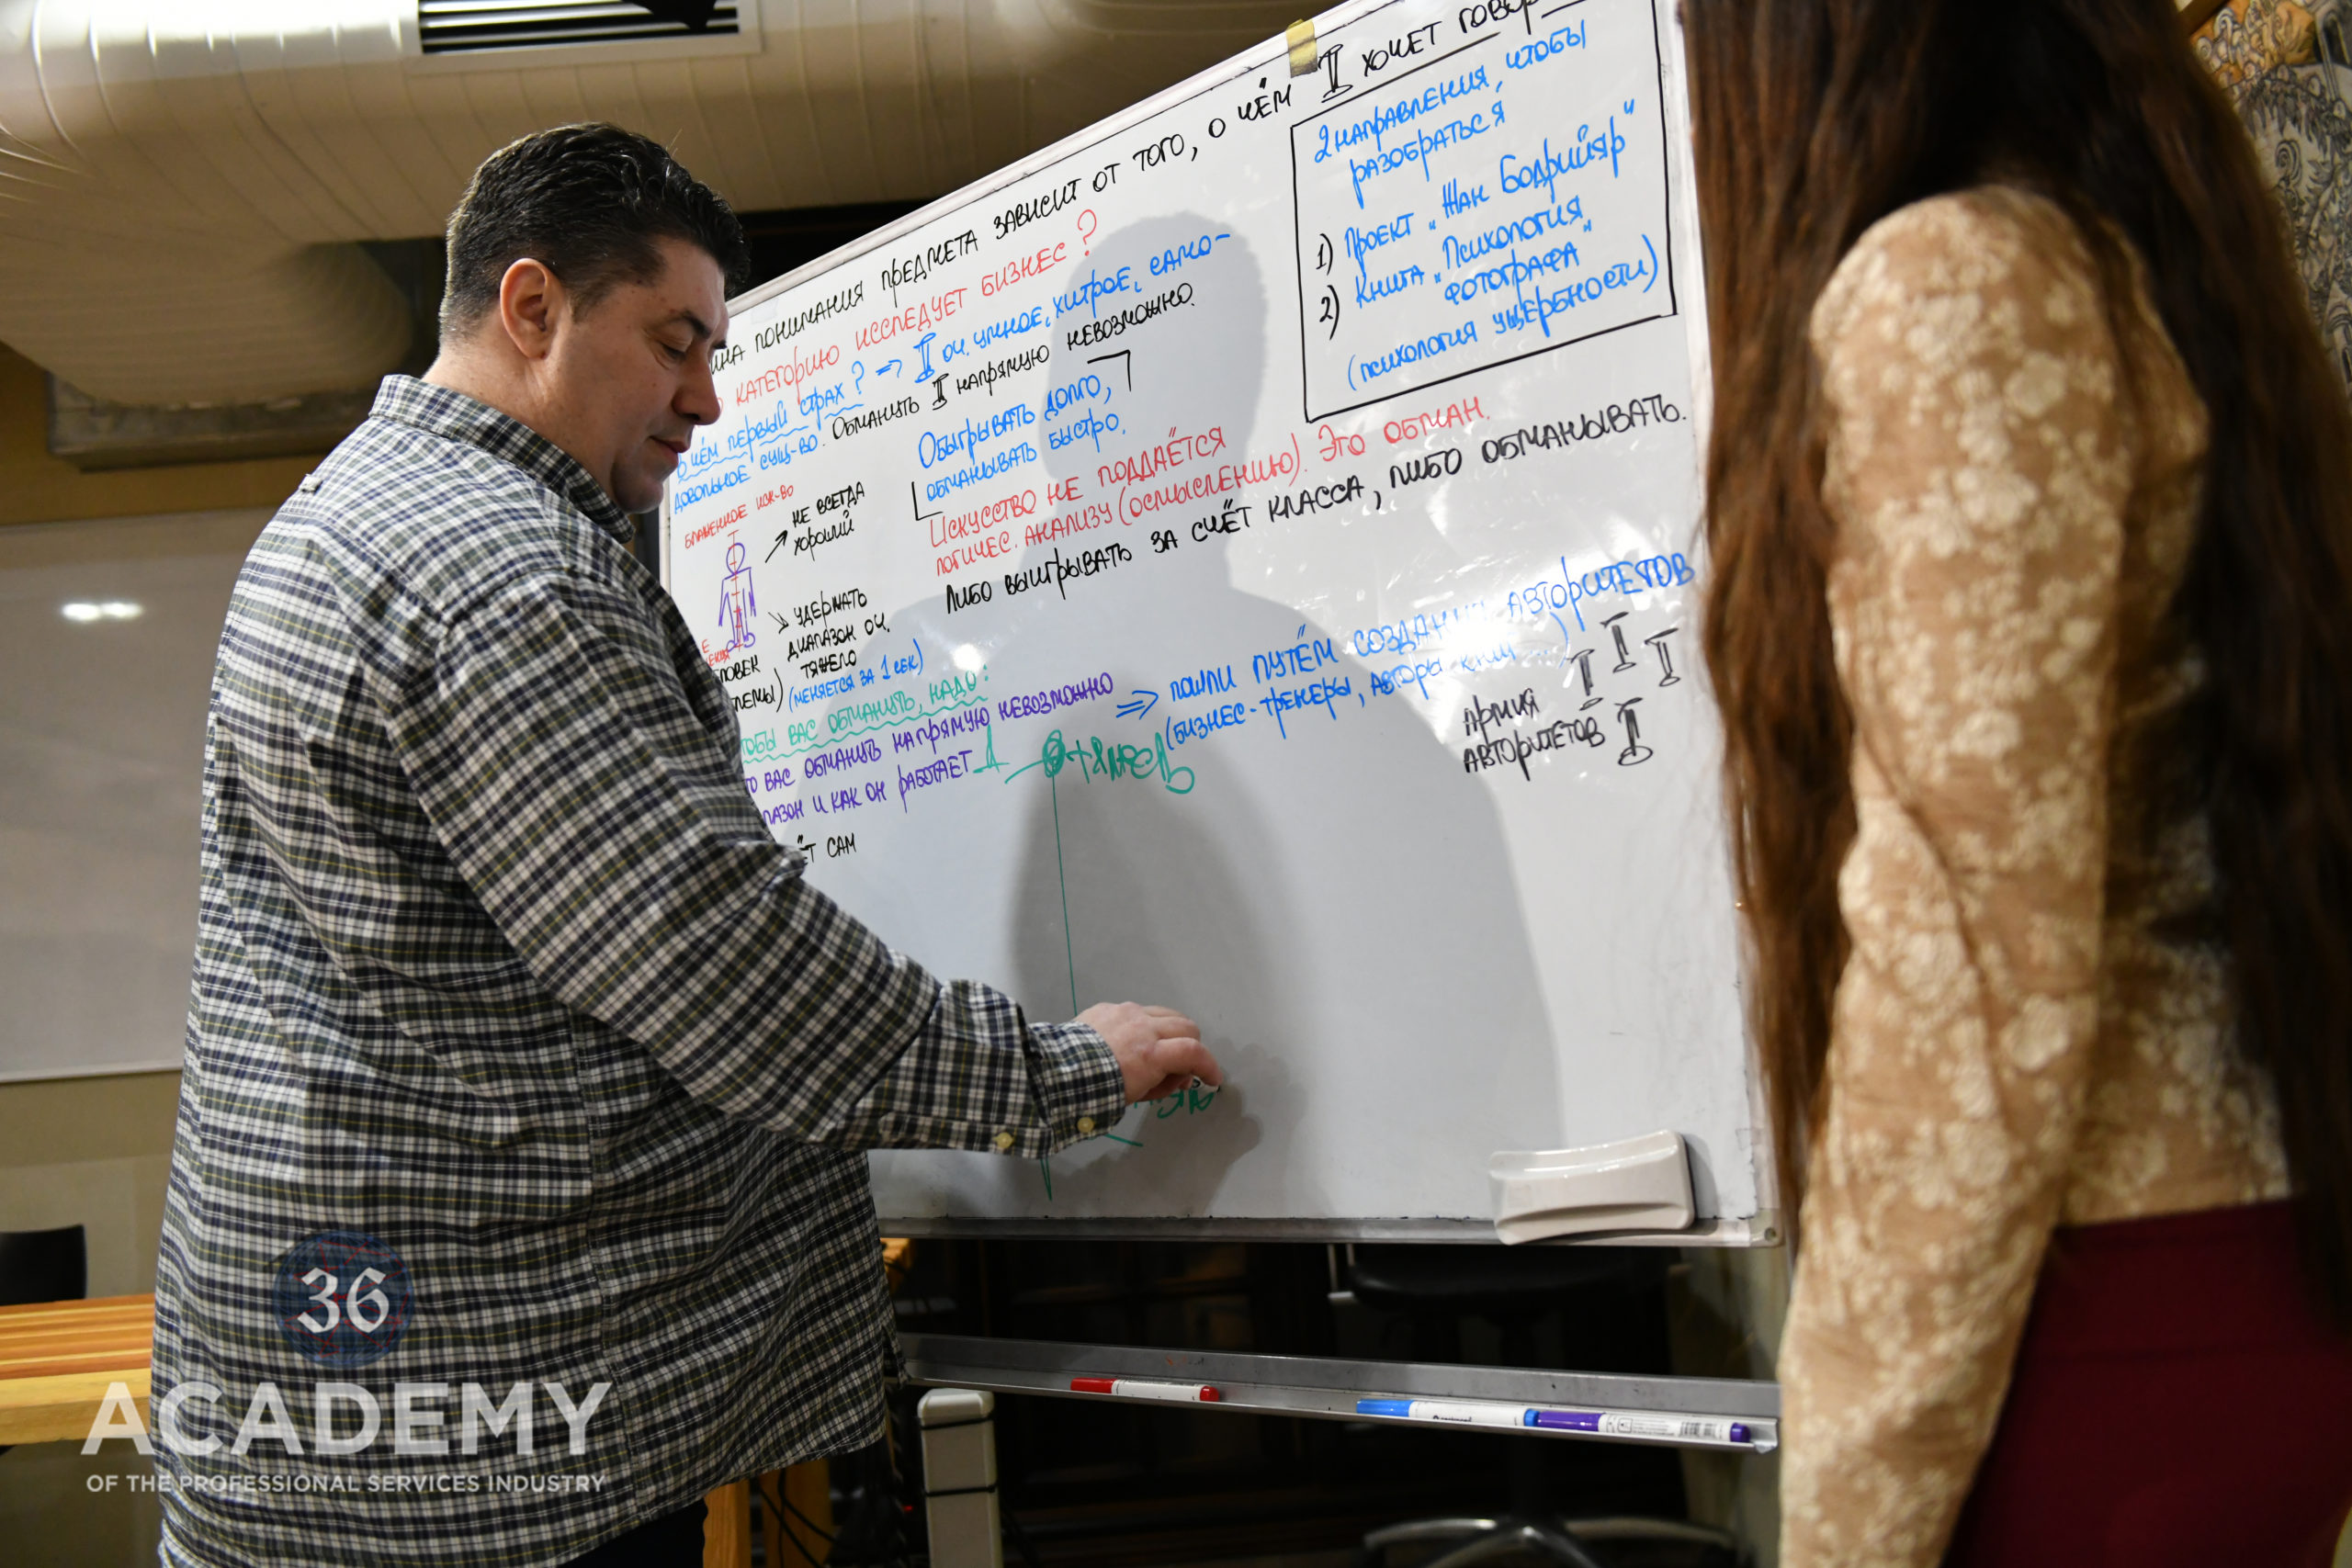 ПОНИМАНИЯ ПРЕДМЕТА ЗАВИСИТ ОТ ТОГО, О ЧЁМ ХОЧЕТ
КАТЕГОРИЮ ИССЛЕДУЕТ БИЗНЕС ?
ЧЁМ ПЕРВЫЙ СТРАХ ? => ОЧ. УМНОЕ, ХИТРОЕ, САМО-
ДОВОЛЬНОЕ СУЩ-ВО. ОБМАНУТЬ НАПРЯМУЮ НЕВОЗМОЖНО.
ОБЫГРЫВАТЬ ДОЛГО,
ОБМАНЫВАТЬ БЫСТРО.
2 НАПРАВЛЕНИЯ, ЧТОБЫ
РАЗОБРАТЬСЯ
1) ПРОЕКТ „ЖАН БОДРИЙЯР“
2) КНИГА „ПСИХОЛОГИЯ
ФОТОГРАФА“
(ПСИХОЛОГИЯ УЩЕРБНОСТИ)
ИСКУССТВО НЕ ПОДДАЁТСЯ
ЛОГИЧЕС. АНАЛИЗУ (ОСМЫСЛЕНИЮ). ЭТО ОБМАН.
ЛИБО ВЫИГРЫВАТЬ ЗА СЧЁТ КЛАССА, ЛИБО ОБМАНЫВАТЬ.
НЕ ВСЕГДА
ХОРОШИЙ
УДЕРЖАТЬ
ДИАПАЗОН ОЧ.
ТЯЖЕЛО
(МЕНЯЕТСЯ ЗА 1 СЕК)
ВАС ОБМАНУТЬ, НАДО:
ВАС ОБМАНУТЬ НАПРЯМУЮ НЕВОЗМОЖНО => ПОШЛИ ПУТЁМ СОЗДАНИЯ АВТОРИТЕТОВ
(БИЗНЕС-ТРЕНЕРЫ, АВТОРЫ КНИГ ...)
И КАК ОН РАБОТАЕТ
САМ
АРМИЯ
АВТОРИТЕТОВ
36
ACADEMY
OF THE PROFESSIONAL SERVICES INDUSTRY